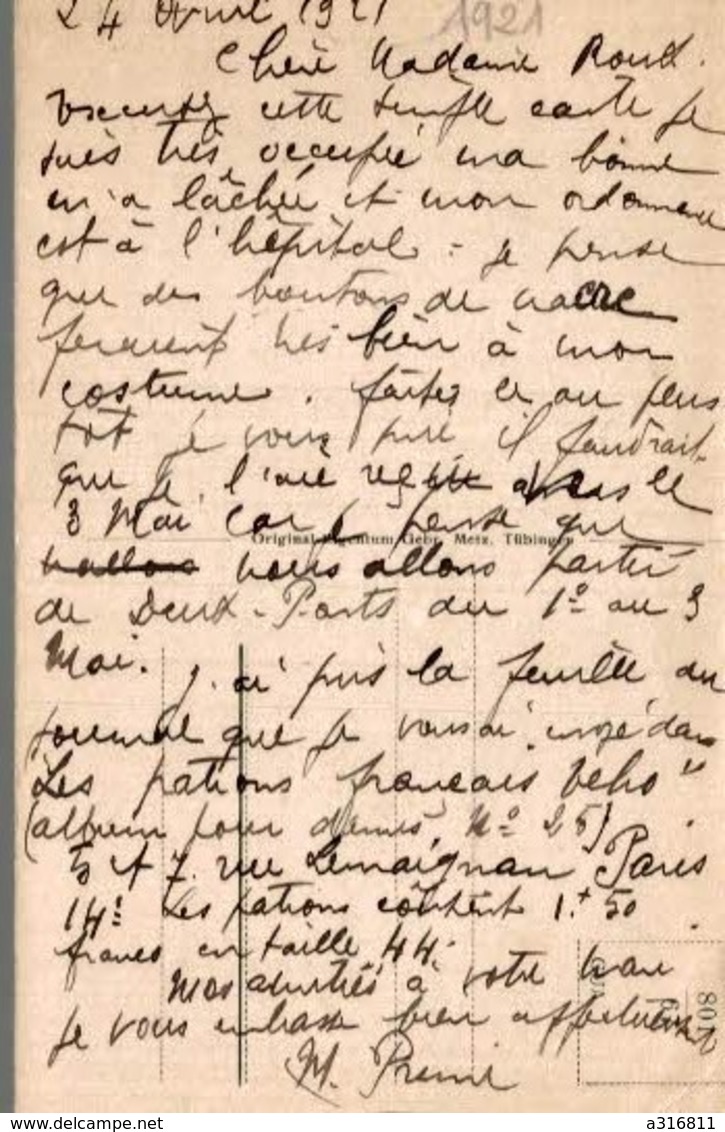 24 Avril 1921 1921
Chère Madame Roux.
Excusez cette simple carte je
suis très occupée ma bonne
m'a lâchée et mon ordonnance
est à l'hôpital - je pense
que des boutons de nacre
feraient très bien à mon
costume. faites le au plus
tôt je vous prie il faudrait
que je l'aie reçu avant le
3 Mai car je pense que
Original-Eigentum Gebr. Metz, Tübingen
nous allons partir
de Deux-Ponts du 1º au 3
Mai. J'ai pris la feuille du
journal que je vous ai envoyé dans
"Les patrons français Echo"
(album pour dames, Nº 25)
5 et 7 rue Lemaignan Paris
14º Les patrons coûtent 1. 50
francs en taille 44.
Mes amitiés à votre mari
je vous embrasse bien affectueusement
M.
108
delcampe.net
a316811